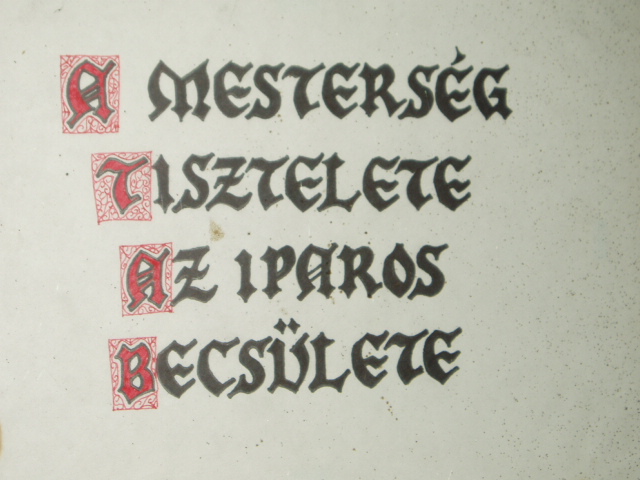 A MESTERSÉG
TISZTELETE
AZ IPAROS
BECSÜLETE